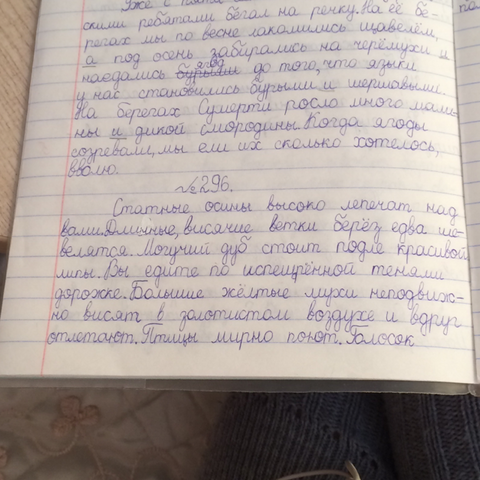 Уже с пяти
скими ребятами бегал на речку. На её бе-
регах мы по весне лакомились щавелём,
а под осень забирались на черёмухи и
ягод
наедались бурыми до того, что языки
у нас становились бурыми и шершавыми.
На берегах Сумерти росло много мали-
ны и дикой смородины. Когда ягоды
созревали, мы ели их сколько хотелось,
вволю.
№296.
Статные осины высоко лепечат над
вами. Длинные, висячие ветки берёз едва ше-
велятся. Могучий дуб стоит подле красивой
липы. Вы едите по испещрённой тенями
дорожке. Большие жёлтые мухи неподвиж-
но висят в золотистом воздухе и вдруг
отлетают. Птицы мирно поют. Голосок